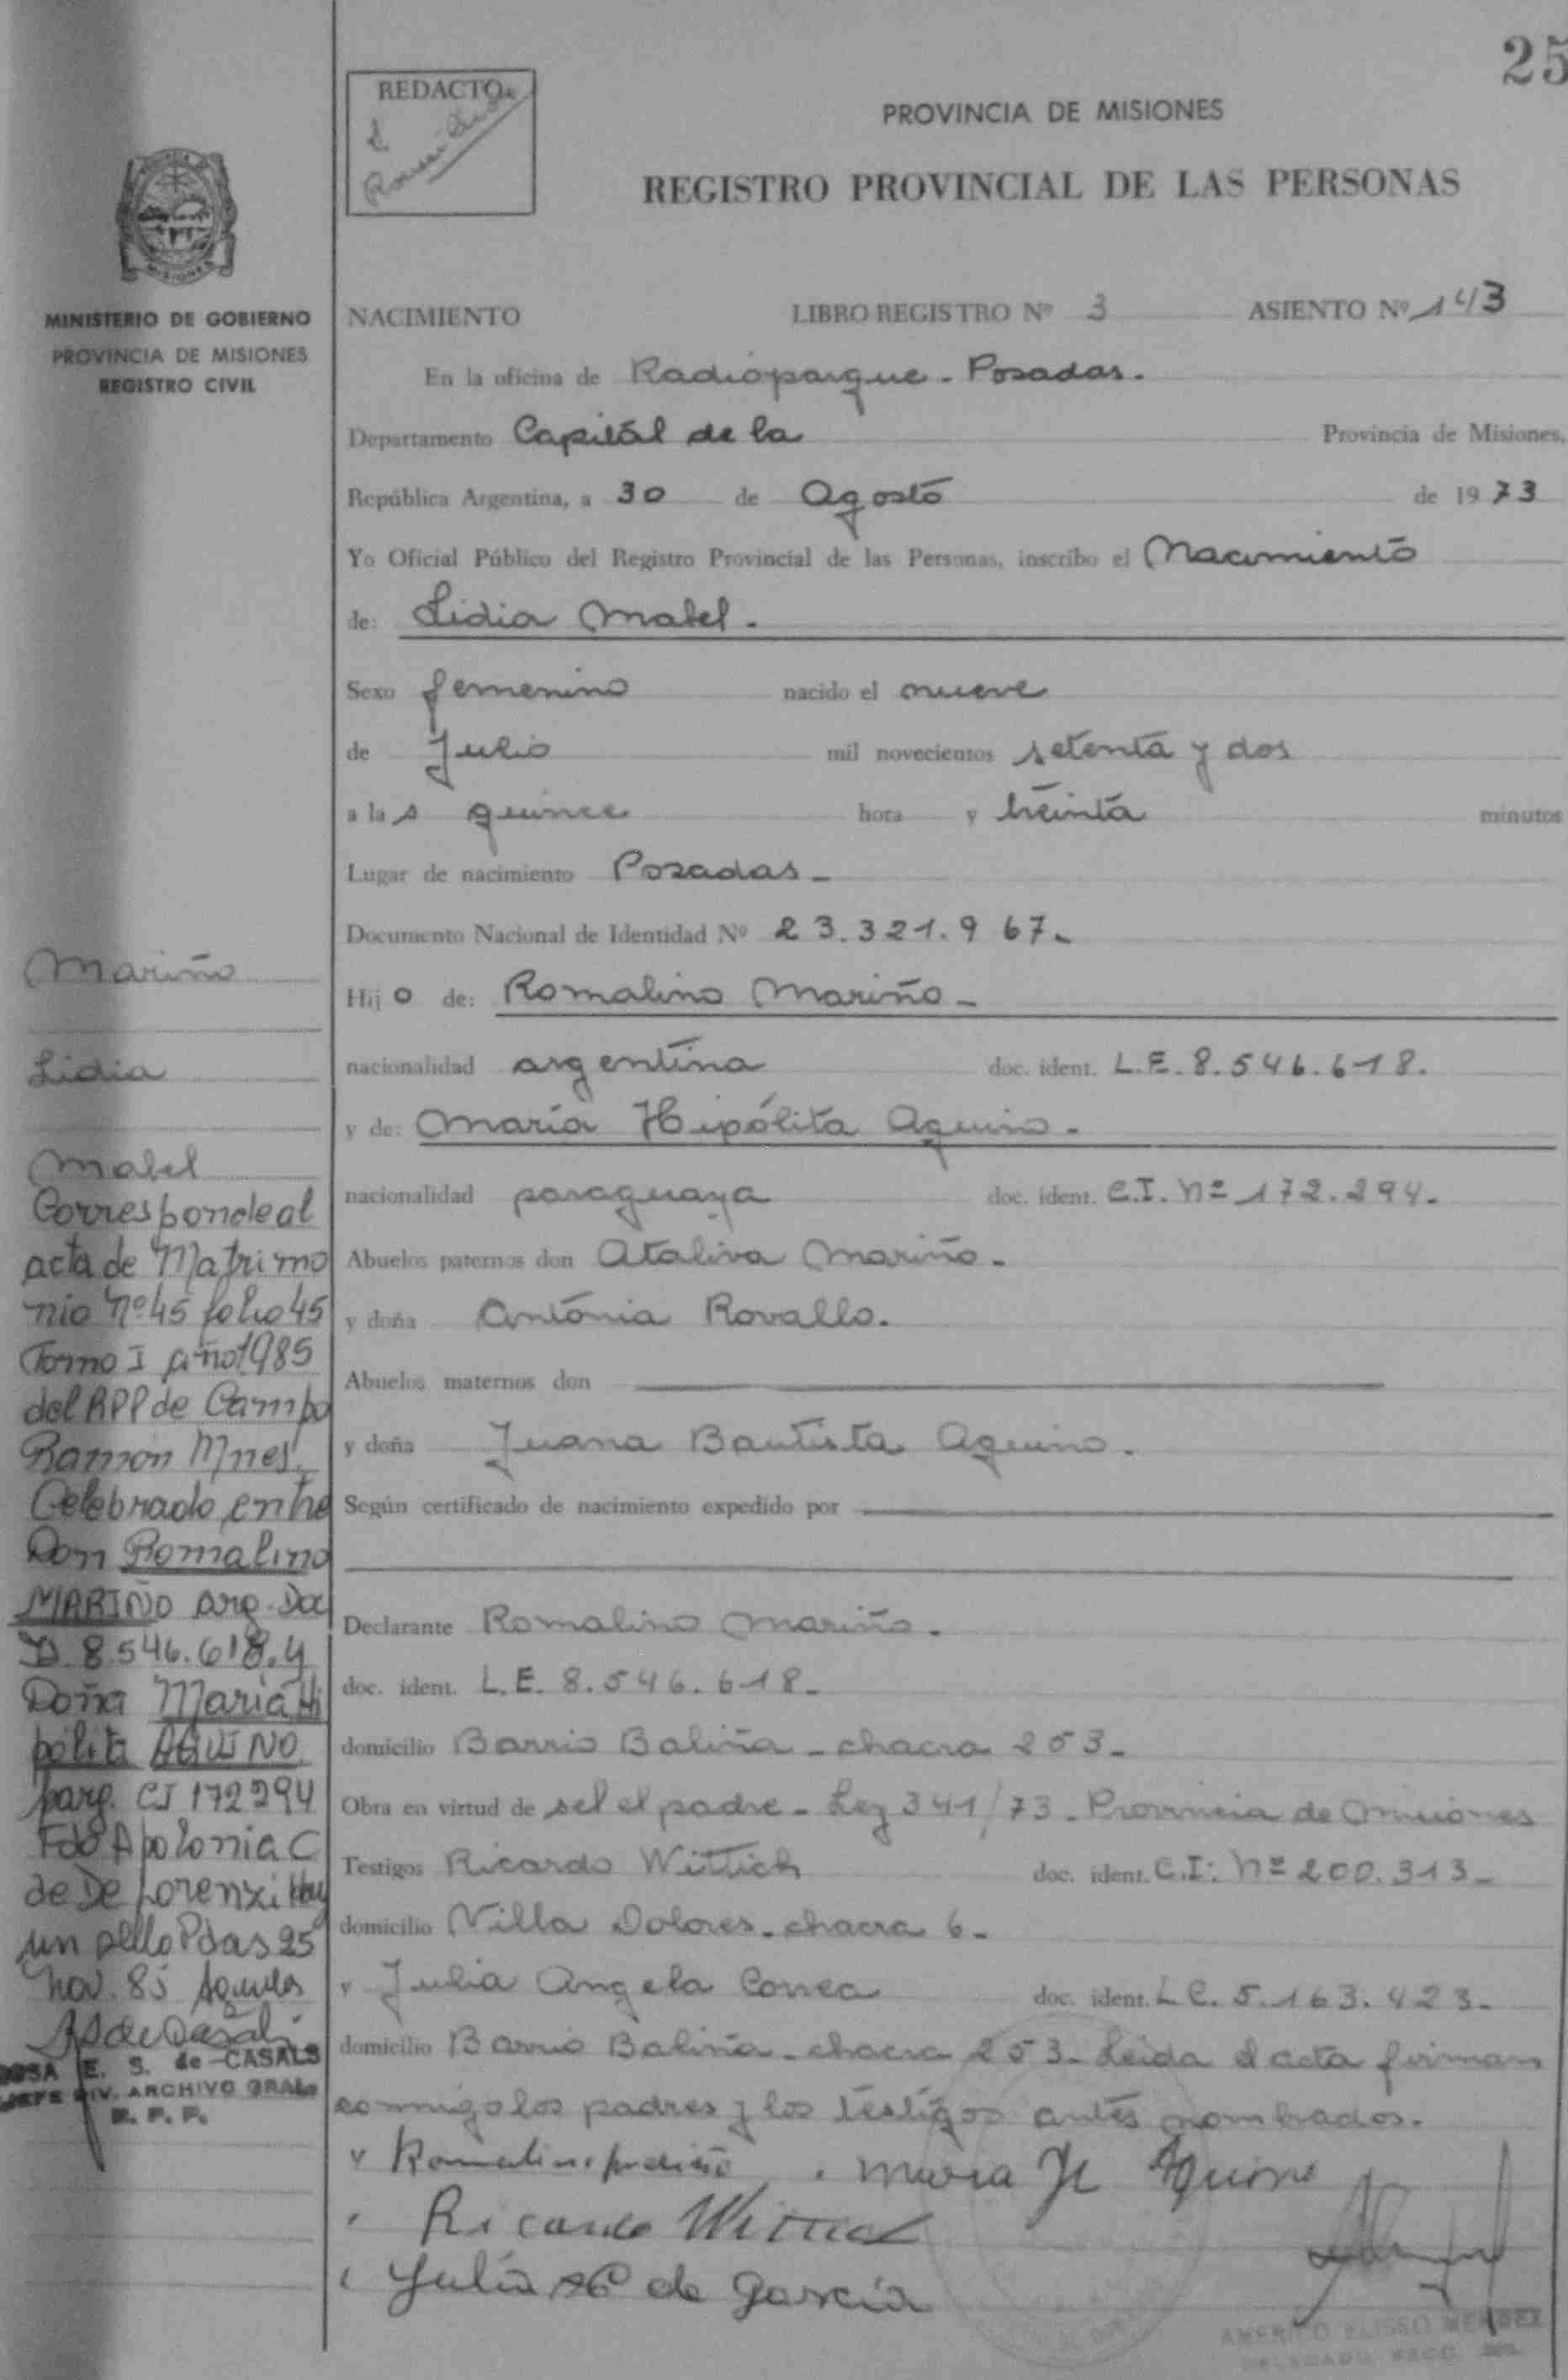 25
REDACTO
PROVINCIA DE MISIONES
REGISTRO PROVINCIAL DE LAS PERSONAS
MISIONES
MINISTERIO DE GOBIERNO
PROVINCIA DE MISIONES
REGISTRO CIVIL
NACIMIENTO LIBRO REGISTRO Nº 3 ASIENTO Nº 143
En la oficina de Radioparque - Posadas.
Departamento Capital de la Provincia de Misiones,
República Argentina, a 30 de Agosto de 1973
Yo Oficial Público del Registro Provincial de las Personas, inscribo el Nacimiento
de: Lidia Mabel.
Sexo femenino nacido el nueve
de Julio mil novecientos setenta y dos
a las quince hora y treinta minutos
Lugar de nacimiento Posadas -
Documento Nacional de Identidad Nº 23.321.967-
Hijo de: Romalino Mariño -
nacionalidad argentina doc. ident. L.E. 8.546.618.
y de: María Hipólita Aquino -
nacionalidad paraguaya doc. ident. C.I. Nº 172.294-
Abuelos paternos don Ataliva Mariño -
y doña Antonia Rovallo.
Abuelos maternos don
y doña Juana Bautista Aquino.
Según certificado de nacimiento expedido por
Declarante Romalino Mariño.
doc. ident. L.E. 8.546.618-
domicilio Barrio Baliña - chacra 253-
Obra en virtud de sel el padre - Ley 341/73 - Provincia de Misiones
Testigos Ricardo Wittich doc. ident. C.I: Nº 200.313-
domicilio Villa Dolores - chacra 6-
y Julia Angela Correa doc. ident. L.C. 5.163.423-
domicilio Barrio Baliña - chacra 253- Leida el acta firman
conmigo los padres y los testigos antes nombrados.
Romalino Mariño Maria H Aquino
Ricardo Wittich
Julia AC de García
AMERICO ELISEO MENDEZ
Mariño
Lidia
Mabel
Corresponde al
acta de Matrimo
nio Nº 45 folio 45
Tomo I año 1985
del RPP de Campo
Ramón Mnes.
Celebrado entre
Don Romalino
MARIÑO arg. Doc
D 8.546.618. y
Doña María Hi
pólita AQUINO
parg. CI 172294
Fdo Apolonia C
de De Lorenzi Hay
un sello Pdas 25
Nov. 85
ROSA E. S. de CASALS
JEFE DIV. ARCHIVO GRAL.
R. P. P.